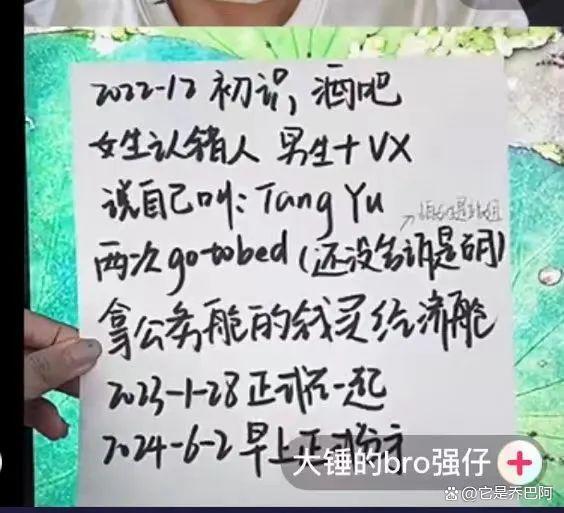 2022-12 初识，酒吧
女生认错人 男生+VX
说自己叫：Tang Yu
两次go to bed（还没确认是否）
拿公务舱的钱买经济舱
2023-1-28 正式在一起
2024-6-2 早上正式分手
大锤的bro强仔
它是乔巴阿